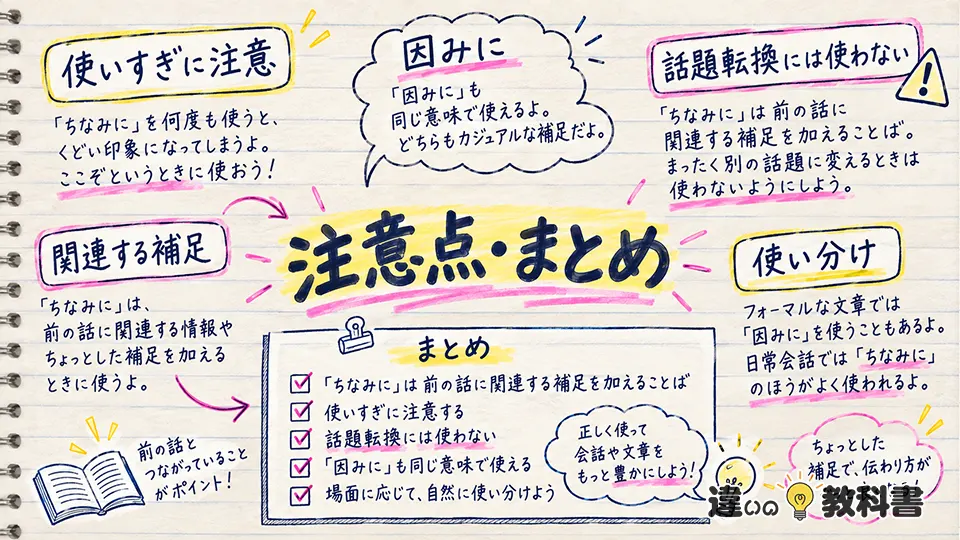 使いすぎに注意
「ちなみに」を何度も使うと、
くどい印象になってしまうよ。
ここぞというときに使おう！
因みに
「因みに」も
同じ意味で使えるよ。
どちらもカジュアルな補足だよ。
話題転換には使わない
「ちなみに」は前の話に
関連する補足を加えることば。
まったく別の話題に変えるときは
使わないようにしよう。
注意点・まとめ
関連する補足
「ちなみに」は、
前の話に関連する情報や
ちょっとした補足を加える
ときに使うよ。
使い分け
フォーマルな文章では
「因みに」を使うこともあるよ。
日常会話では「ちなみに」
のほうがよく使われるよ。
まとめ
「ちなみに」は前の話に関連する補足を加えることば
使いすぎに注意する
話題転換には使わない
「因みに」も同じ意味で使える
場面に応じて、自然に使い分けよう
正しく使って
会話や文章を
もっと豊かにしよう！
前の話と
つながっていること
がポイント！
ちょっとした
補足で、伝わり方が
違いの教科書